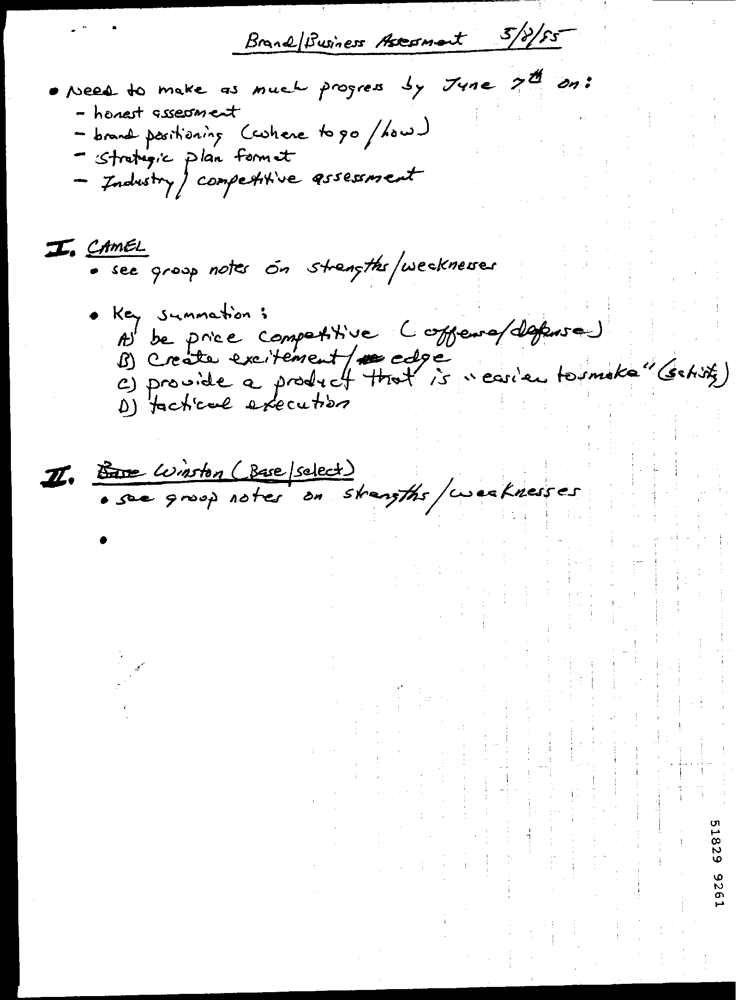 Brand/Business Assessment 5/8/95
• Need to make as much progress by June 7th on:
- honest assessment
- brand positioning (where to go/how)
- Strategic plan format
- Industry/competitive assessment
I. CAMEL
• see group notes on strengths/weaknesses
• Key summation:
A) be price competitive (offense/defense)
B) Create excitement/edge
C) provide a product that is "easier to smoke" (satisfy)
D) tactical execution
II. Base Winston (Base/select)
• see group notes on strengths/weaknesses
•
51829 9261